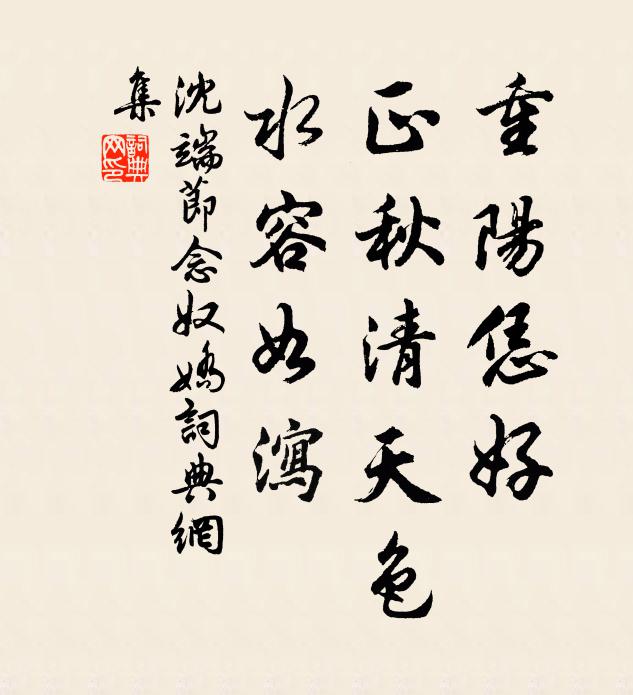 重陽恁好
正秋清天色
水容如瀉
沈端節念奴嬌詞典網
集
詞典網印